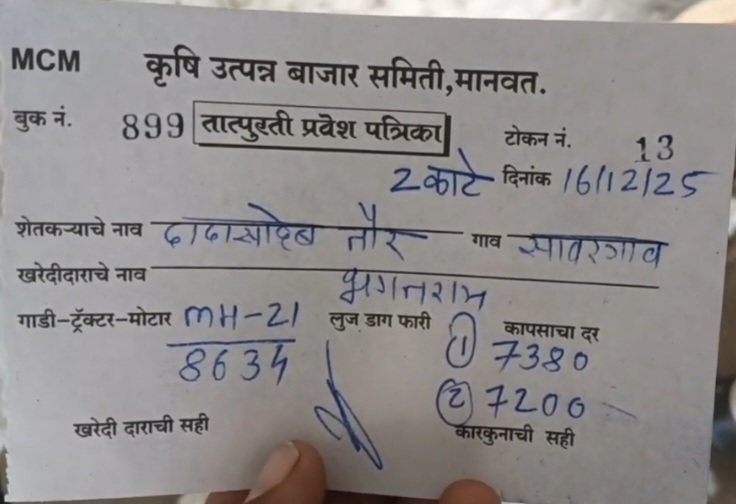 MCM कृषि उत्पन्न बाजार समिती,मानवत.
बुक नं. 899 तात्पुरती प्रवेश पत्रिका टोकन नं. 13
2 काटे दिनांक 16/12/25
शेतकऱ्याचे नाव दादासाहेब तौर गाव सावरगाव
खरेदीदाराचे नाव भगतराम
गाडी-ट्रॅक्टर-मोटार MH-21 लुज डाग फारी कापसाचा दर
8634 ① 7380
② 7200
खरेदी दाराची सही कारकुनाची सही